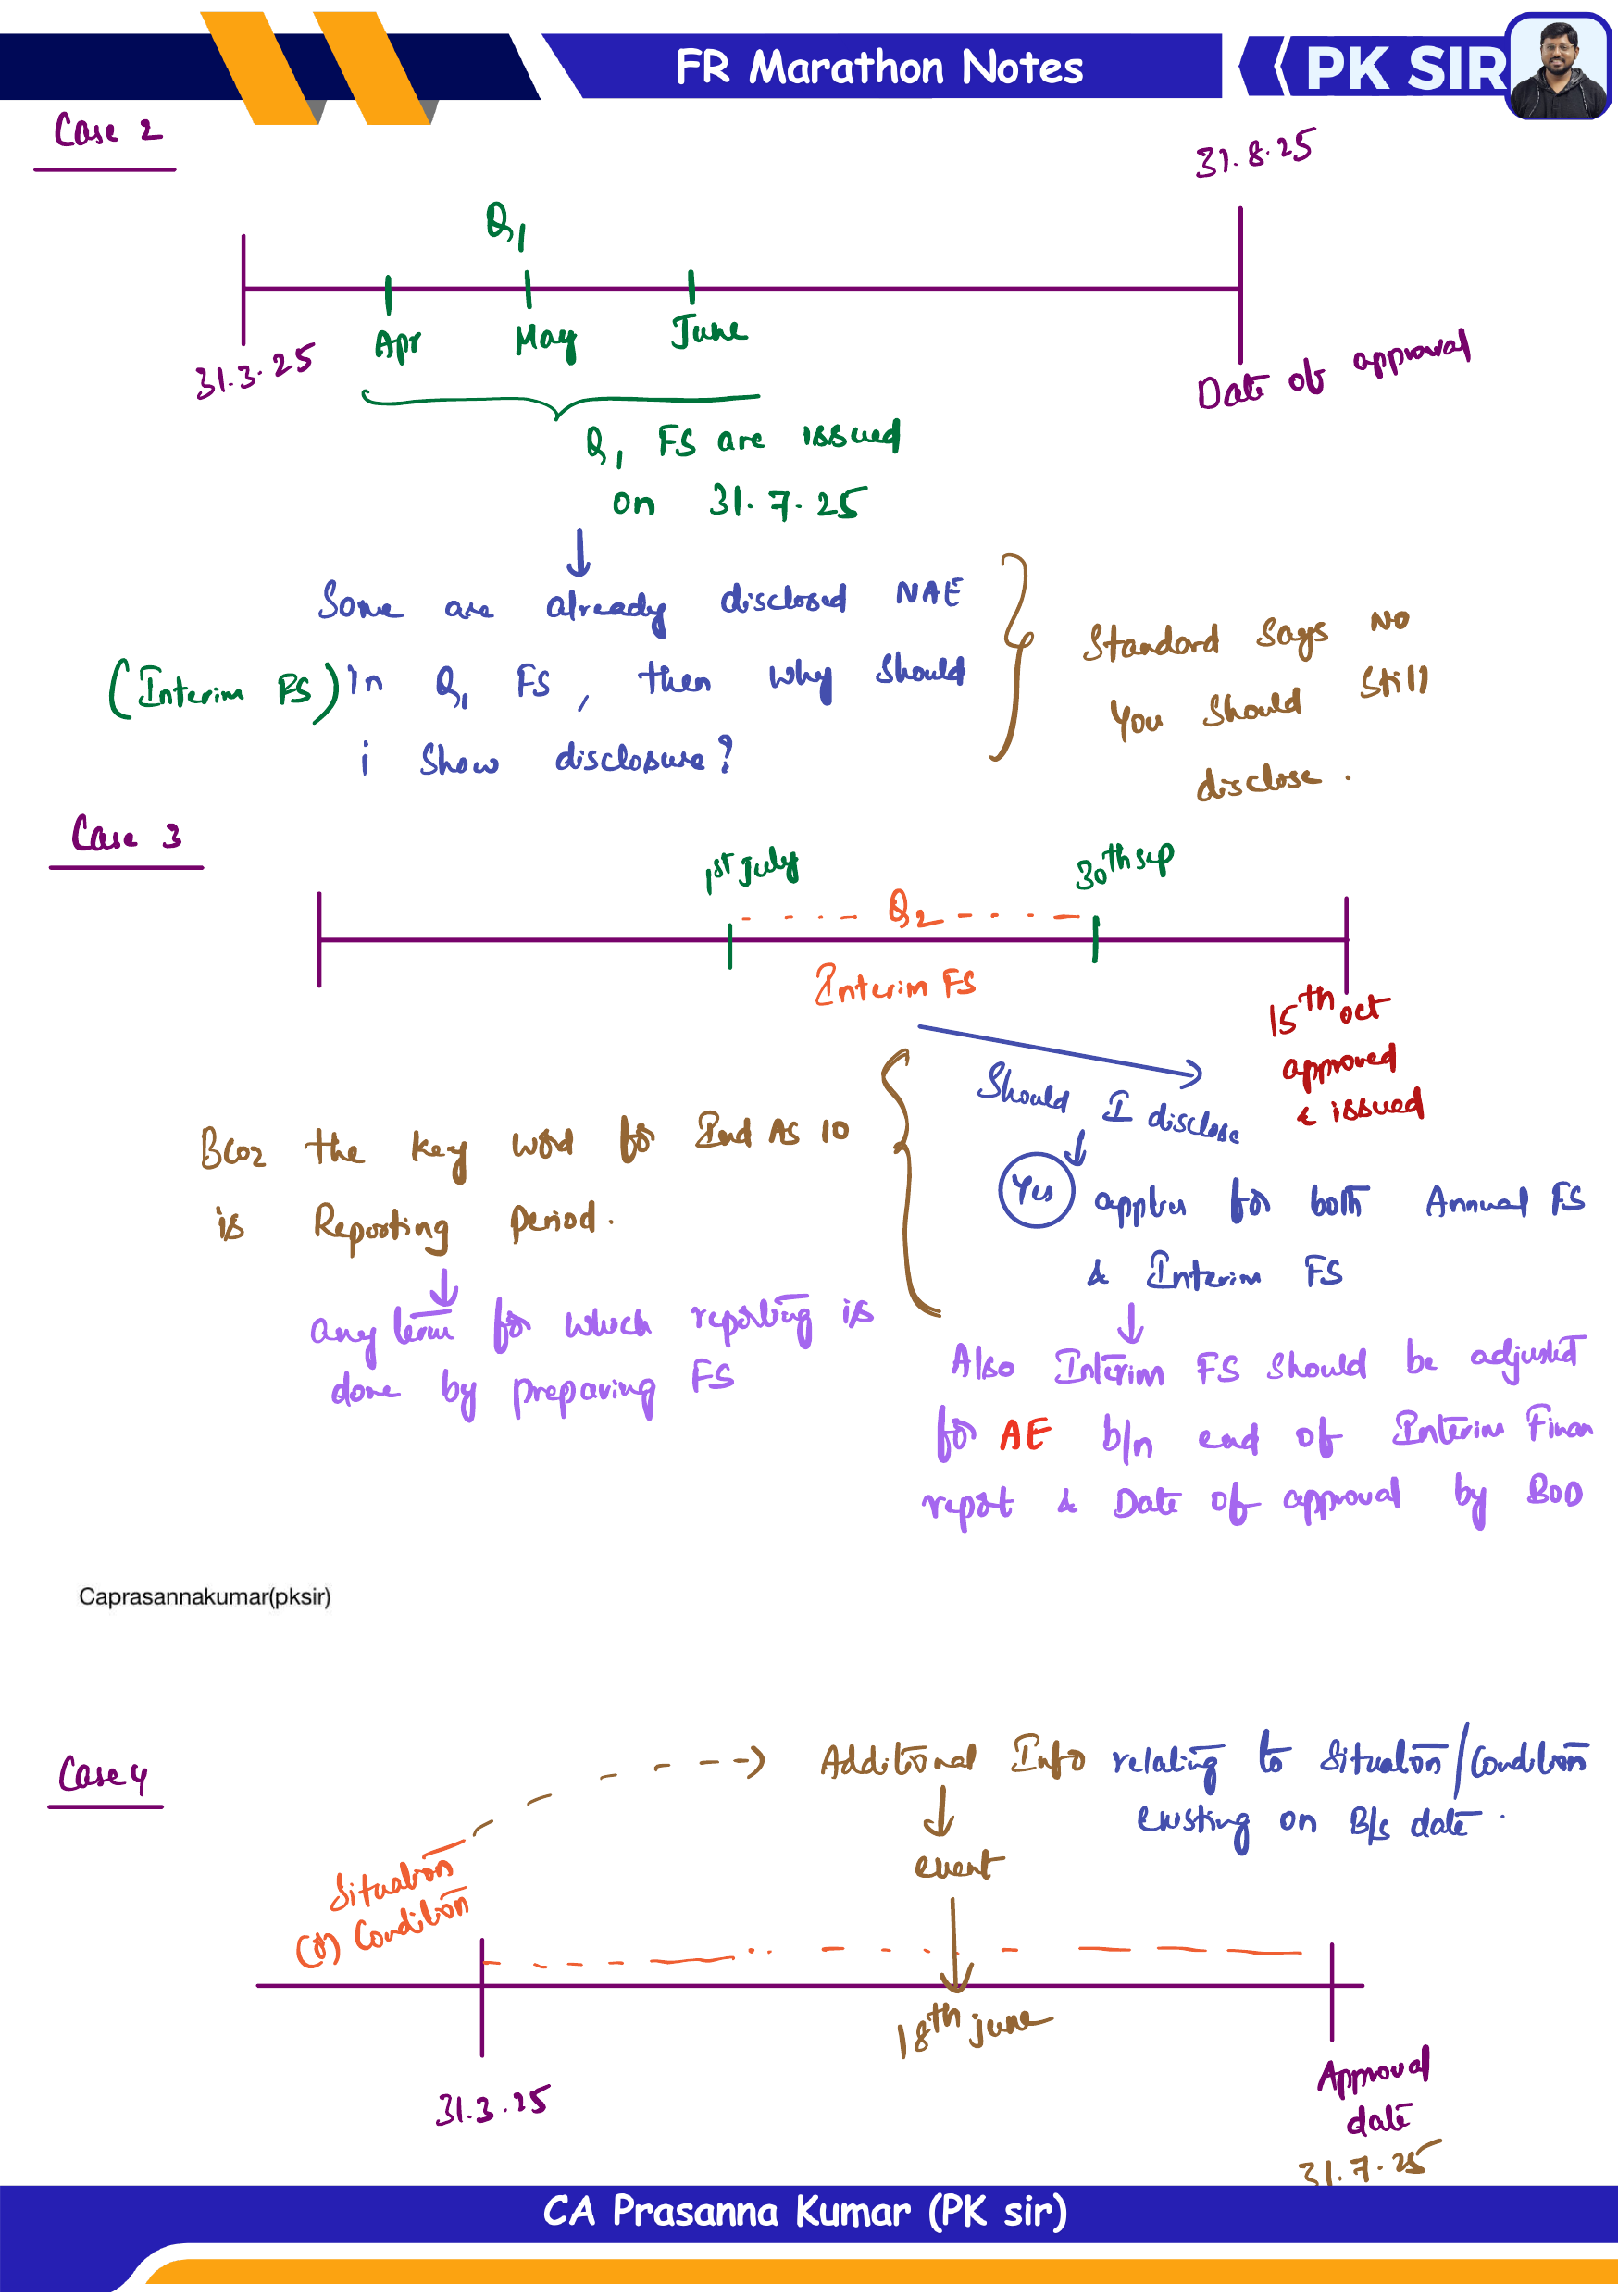 FR Marathon Notes
PK SIR
Case 2
31.8.25
Q1
Apr May June
31.3.25
Date of approval
Q1 FS are issued
on 31.7.25
Some are already disclosed NAE
(Interim FS) in Q1 FS, then why should
i show disclosure?
Standard says No
You should still
disclose.
Case 3
1st July
30th sep
Q2
Interim FS
15th oct
approved
& issued
Should I disclose
Yes applies for both Annual FS
& Interim FS
Bcoz the key word for Ind AS 10
is Reporting period.
any term for which reporting is
done by preparing FS
Also Interim FS should be adjusted
for AE b/n end of Interim Finan
report & Date of approval by BOD
Caprasannakumar(pksir)
Case 4
Additional Info relating to Situation/Condition
existing on B/s date.
event
Situation
(or) Condition
18th june
31.3.25
Approval
date
31.7.25
CA Prasanna Kumar (PK sir)